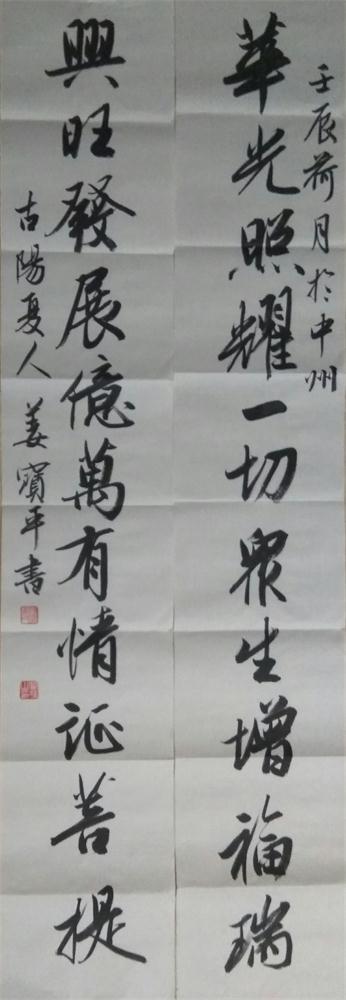 壬辰荷月於中州
華光照耀一切眾生增福瑞
興旺發展億萬有情证菩提
古陽夏人 姜寶平書